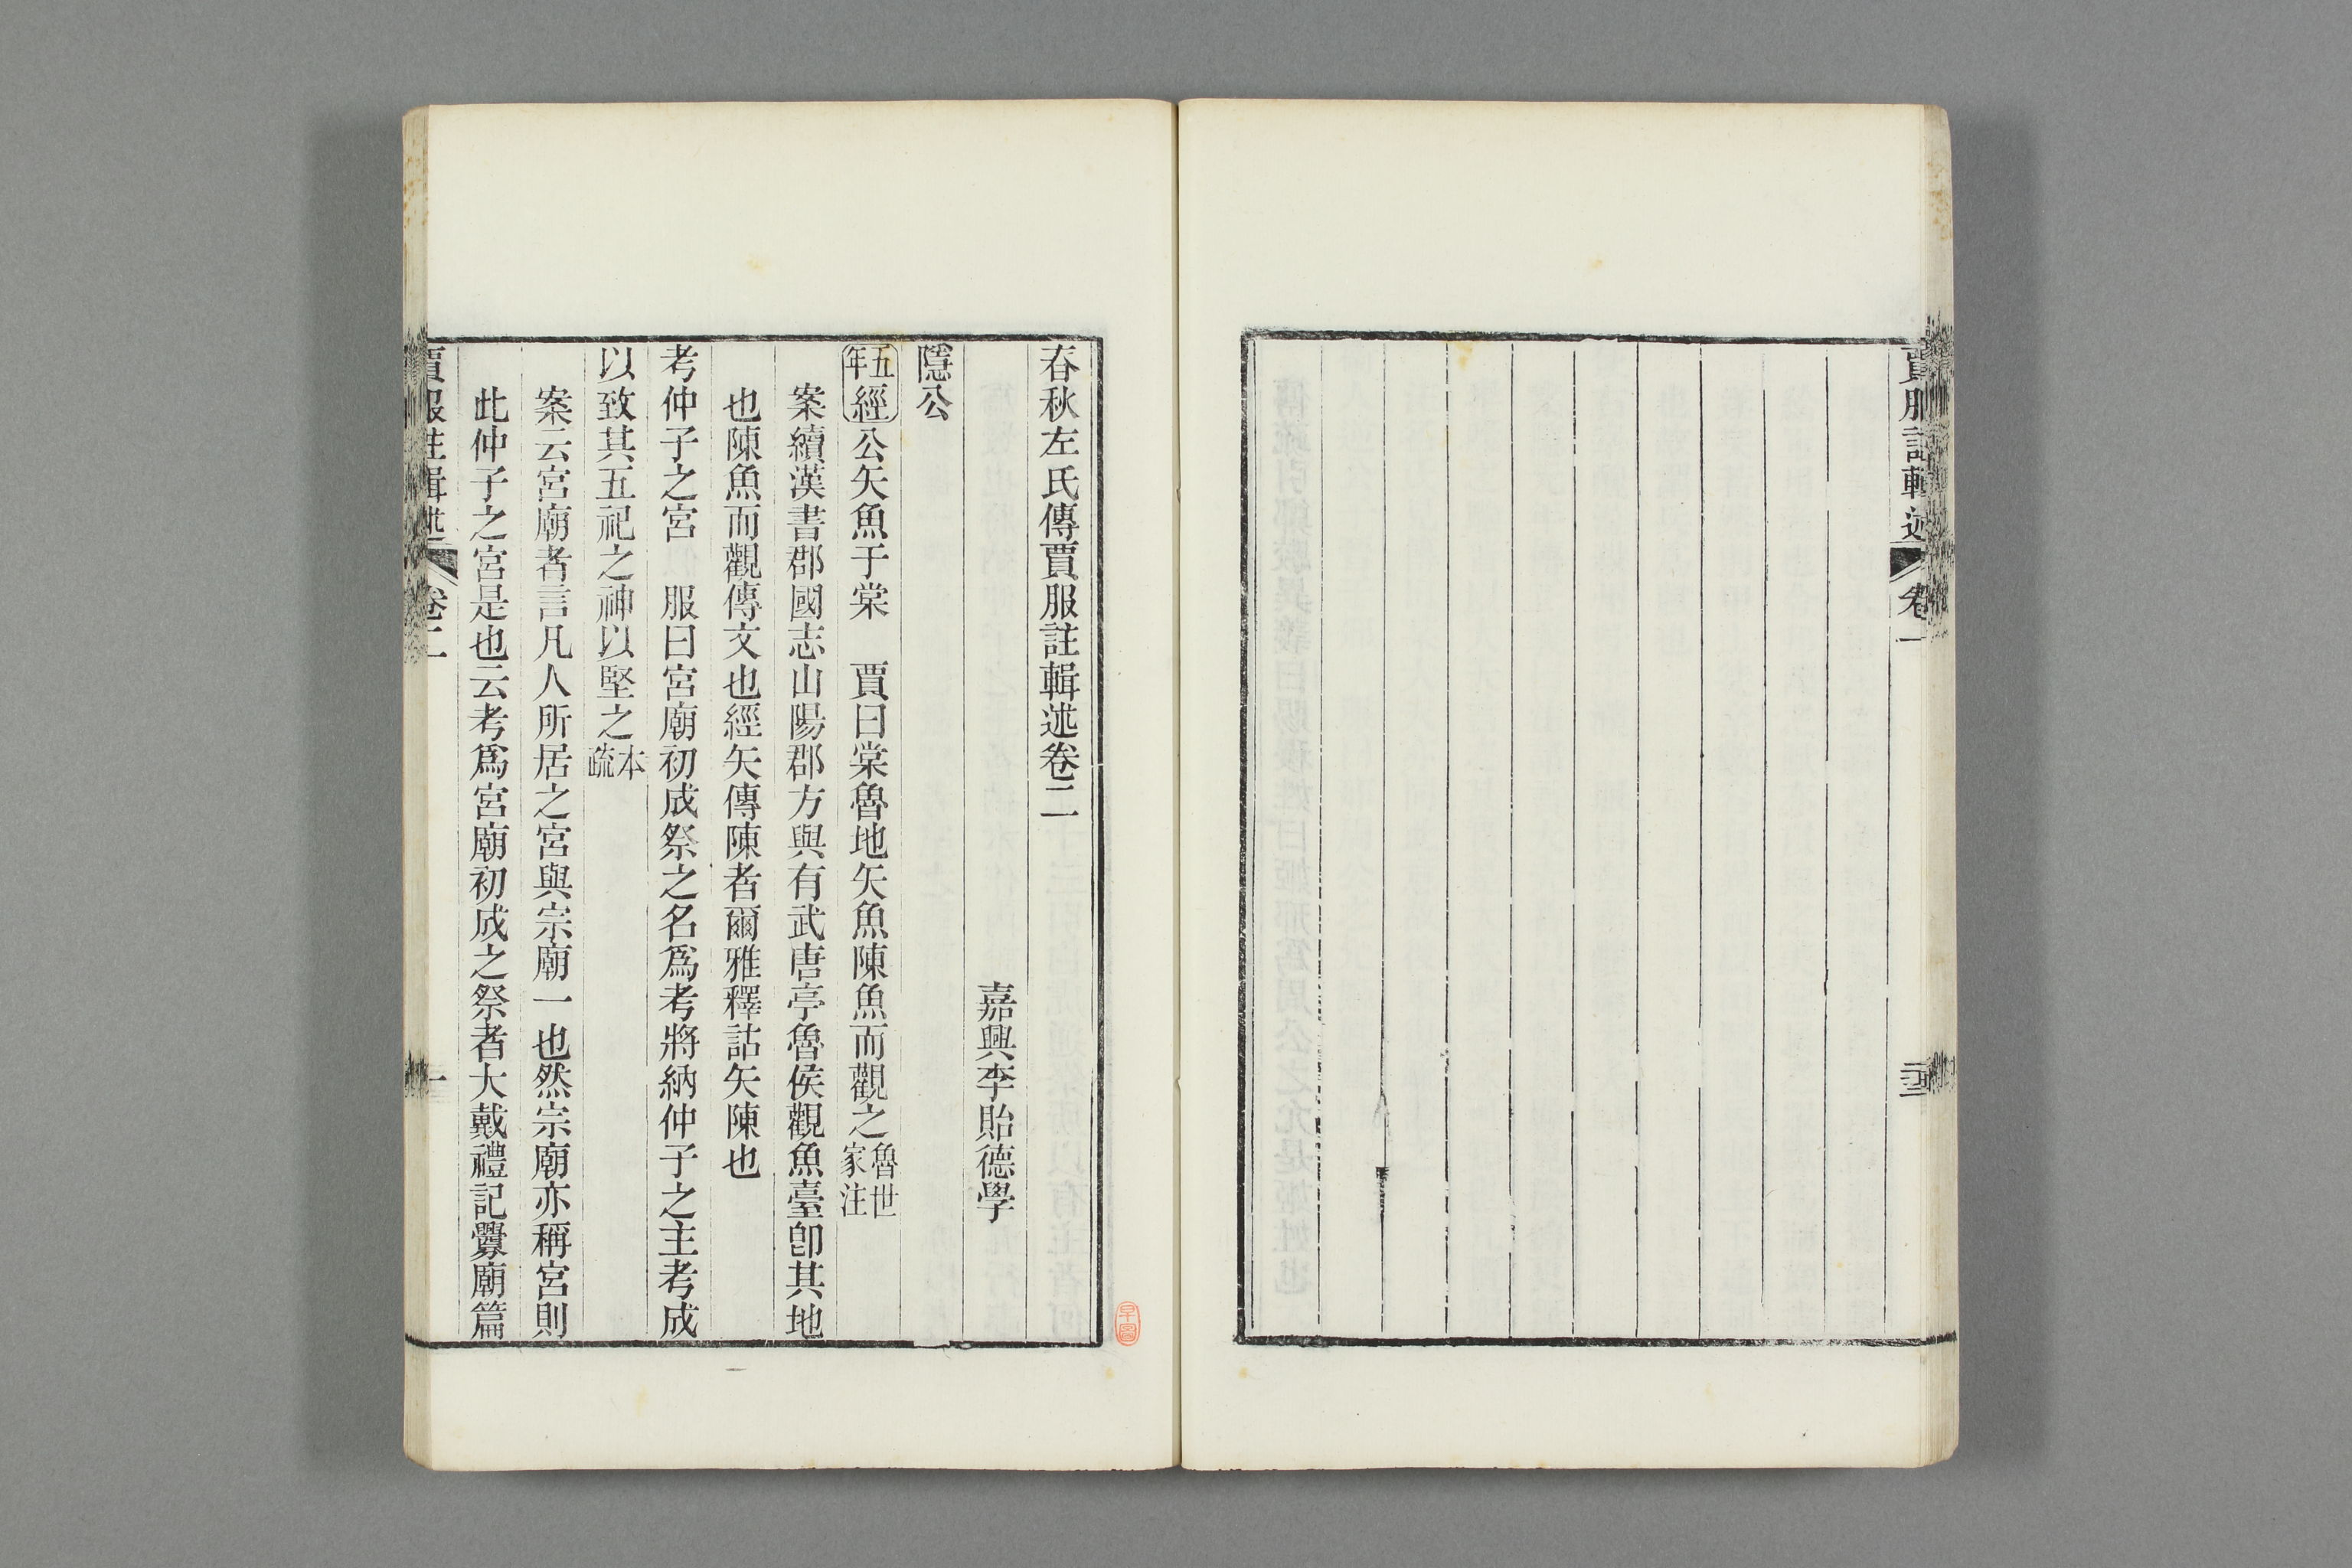 賈服註輯述 卷一
春秋左氏傳賈服註輯述卷二
嘉興李貽德學
隱公
五年經公矢魚于棠　賈曰棠魯地矢魚陳魚而觀之魯世家注
案續漢書郡國志山陽郡方與有武唐亭魯侯觀魚臺卽其地
也陳魚而觀傳文也經矢傳陳者爾雅釋詁矢陳也
考仲子之宮　服曰宮廟初成祭之名爲考將納仲子之主考成
以致其五祀之神以堅之本疏
案云宮廟者言凡人所居之宮與宗廟一也然宗廟亦稱宮則
此仲子之宮是也云考爲宮廟初成之祭者大戴禮記釁廟篇
賈服註輯述 卷二 一